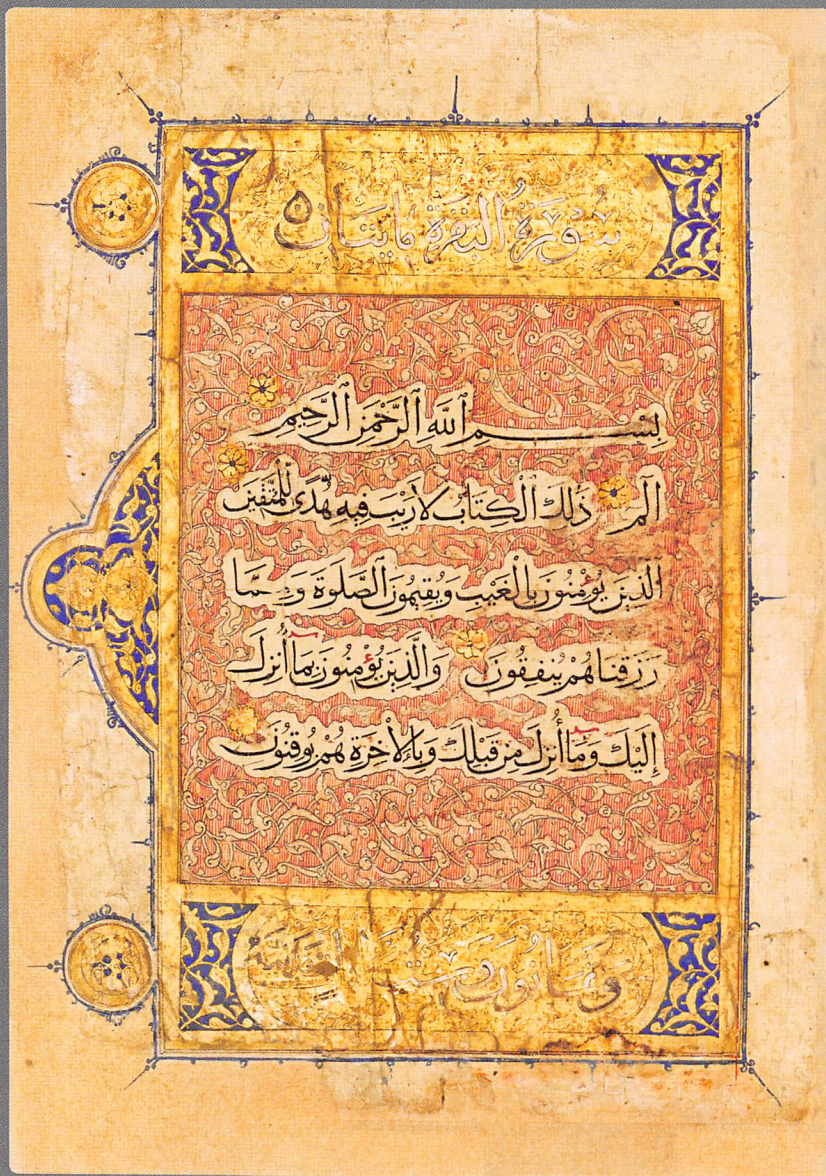 سورة البقرة مايتان
بسم الله الرحمن الرحيم
الم ذلك الكتاب لا ريب فيه هدى للمتقين
الذين يؤمنون بالغيب ويقيمون الصلوة ومما
رزقناهم ينفقون والذين يؤمنون بما أنزل
إليك وما أنزل من قبلك وبالآخرة هم يوقنون
وثمانون وست